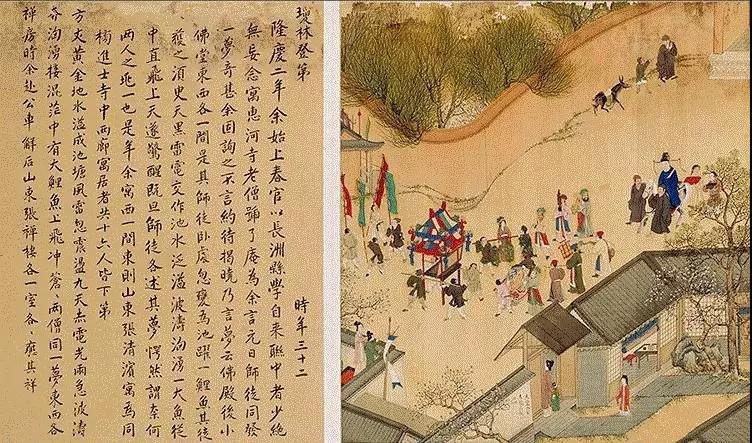 瓊林登第
時年三十二
隆慶二年余始上春官以長洲縣學自来聯中者少絶
無妄念寓惠河寺老僧號了庵為余言元日師徒同發
一夢奇甚余因詢之不言約待揭曉乃言夢云佛殿後小
佛堂東西各一間是其師徒卧處忽甃為池躍一鯉魚其徒
穫之湏臾天黒雷電交作池水泛溢波濤洶湧一大魚從
中直飛上天遂驚醒既旦師徒各述其夢愕然謂奈何
两人之兆一也是年余寓西一間東則山東張清濱寓焉同
進士寺中两廊寓居者共十六人皆下第
方炎黄金地水溢成池塘風雷忽震盪九天赤電光雨急波濤
奔洶湧接混茫中有大鯉魚上飛冲蒼、两僧同一夢東西各
禅房時余赴公車解后山東張祥樓各一室各應其祥